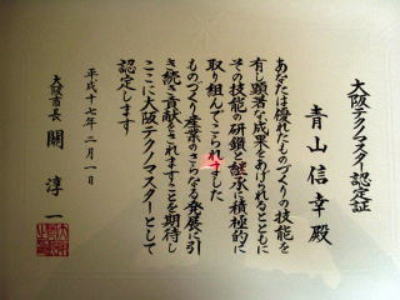 大阪テクノマスター認定証
青山信幸殿
あなたは優れたものづくりの技能を
有し顕著な成果をあげられるとともに
その技能の研鑽と継承に積極的に
取り組んでこられました
ものづくり産業のさらなる発展に引
き続き貢献をされますことを期待し
ここに大阪テクノマスターとして
認定します
平成十七年二月一日
大阪市長 關淳一